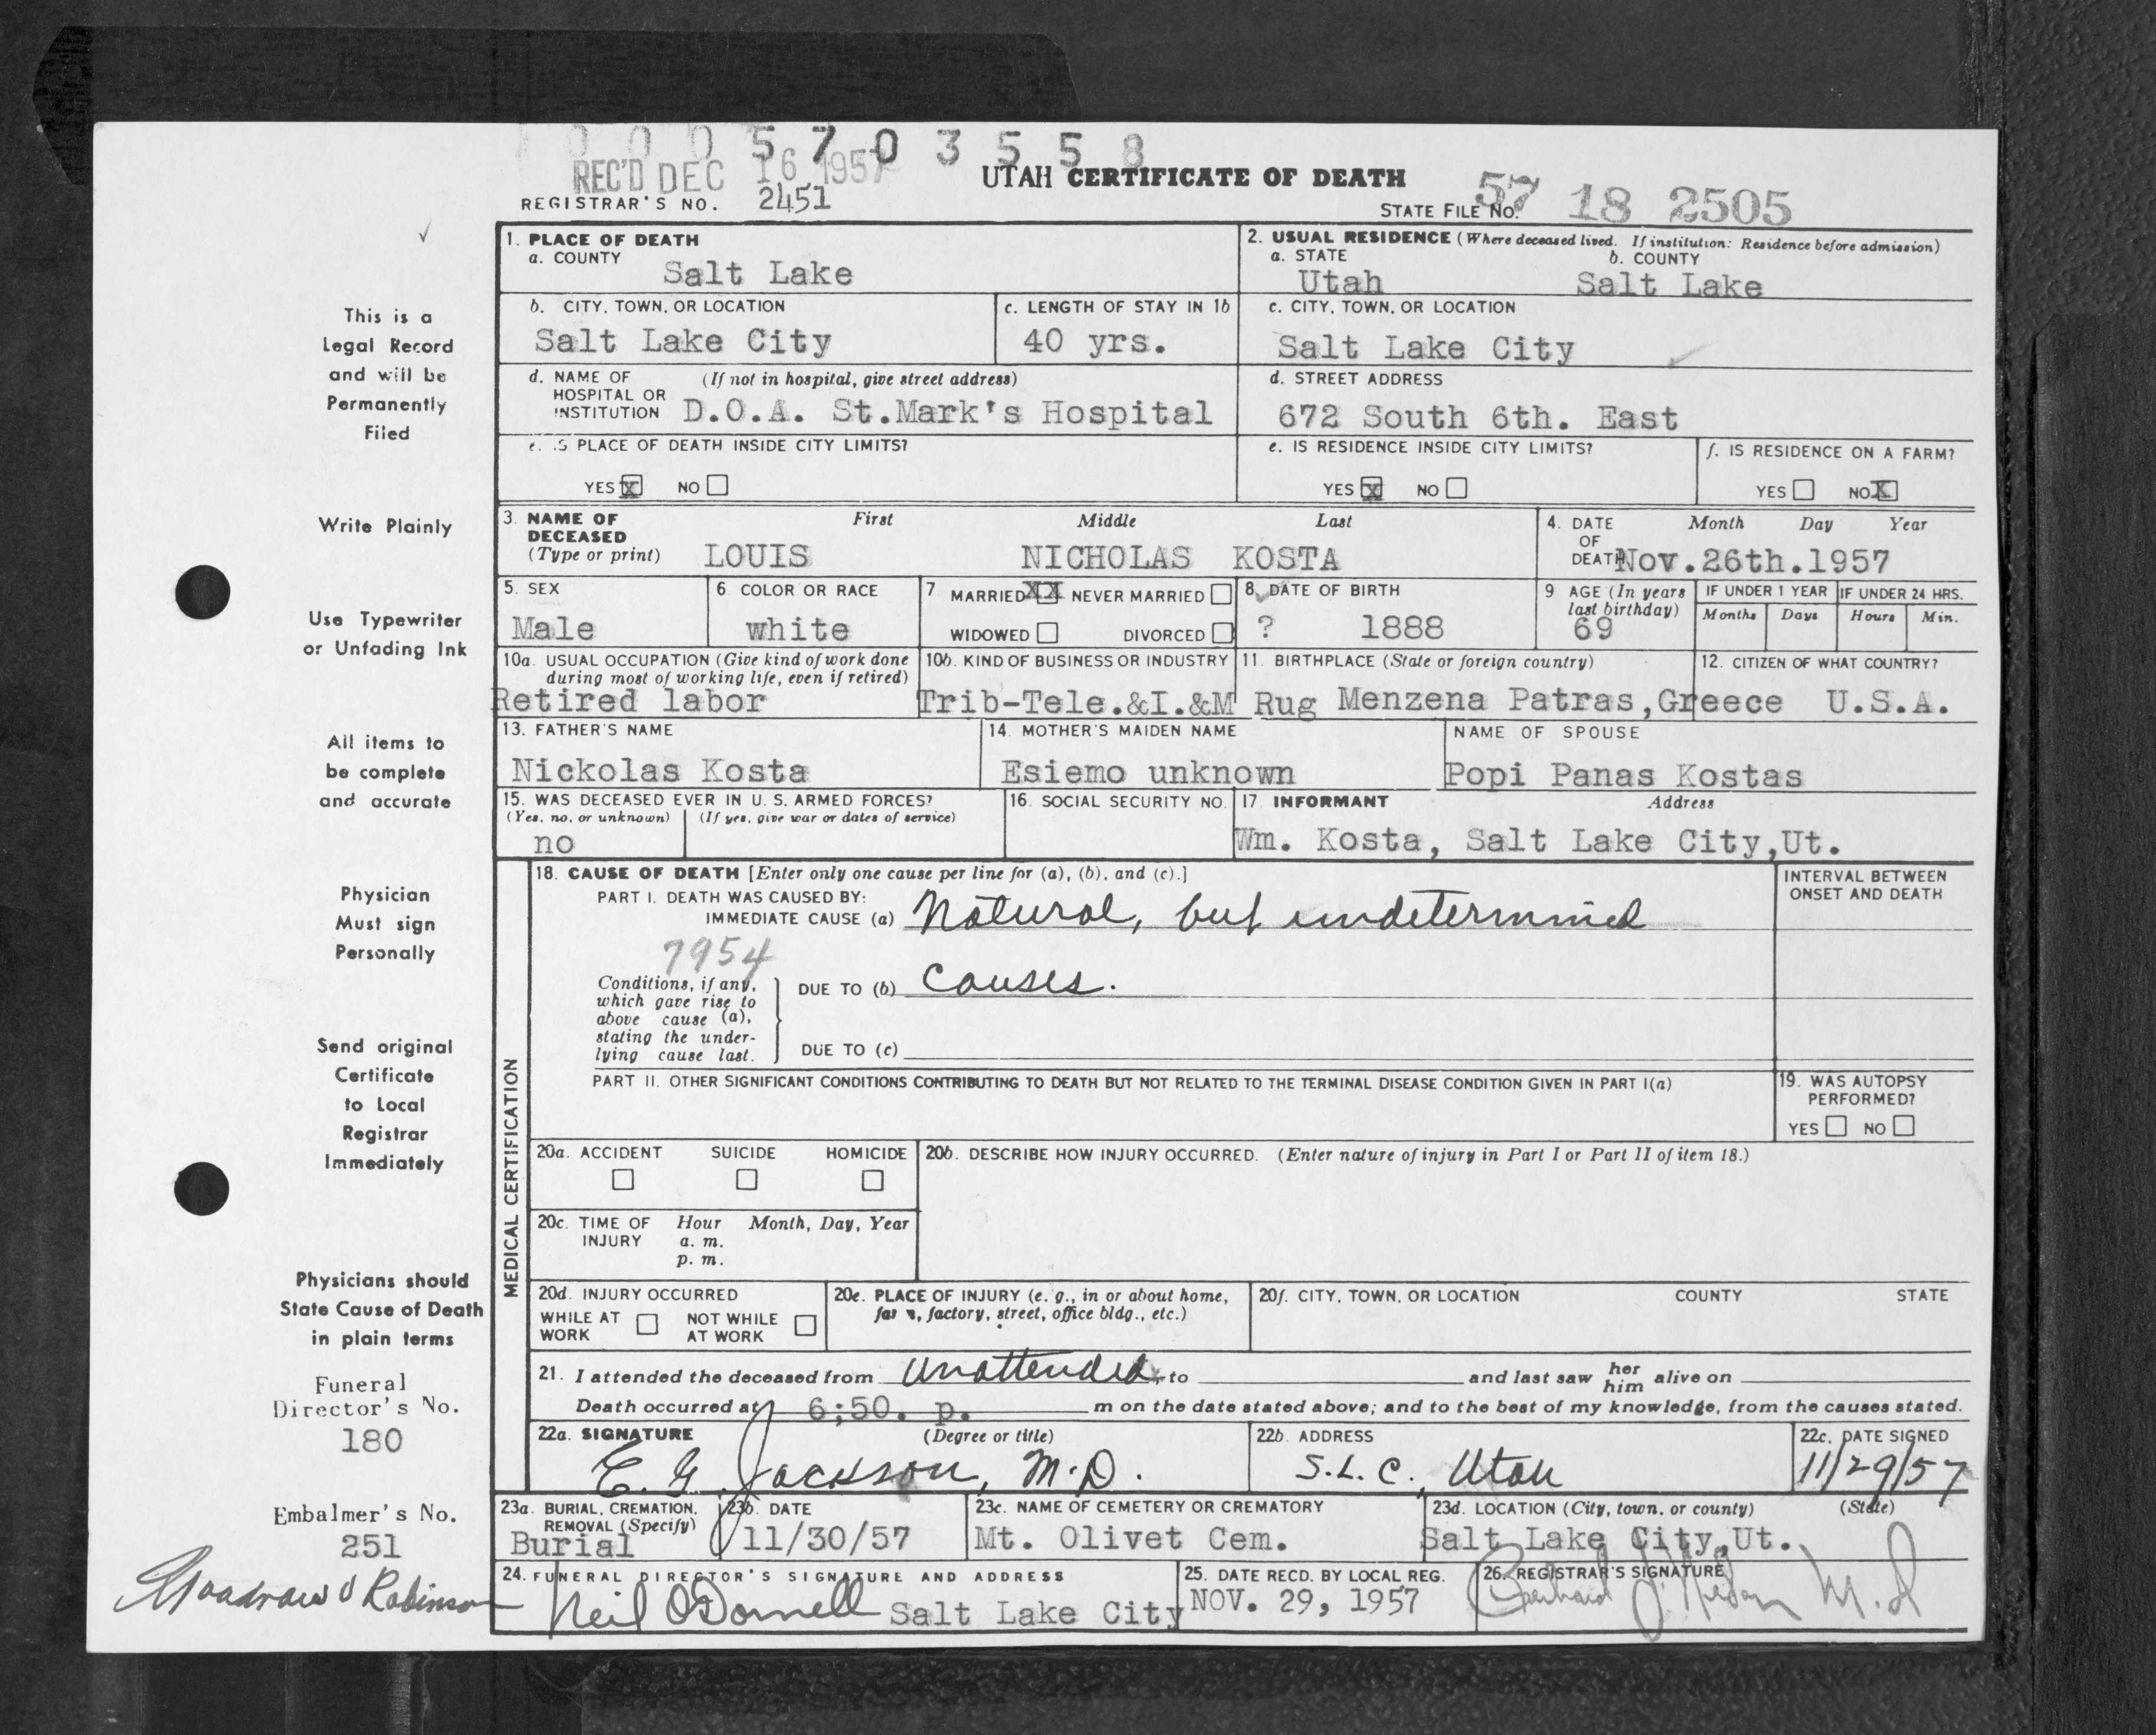 0 0 0 5 7 0 3 5 5 8
REC'D DEC 16 1957
UTAH CERTIFICATE OF DEATH
REGISTRAR'S NO. 2451
STATE FILE NO. 57 18 2505
1. PLACE OF DEATH
a. COUNTY
Salt Lake
2. USUAL RESIDENCE (Where deceased lived. If institution: Residence before admission)
a. STATE b. COUNTY
Utah Salt Lake
b. CITY, TOWN, OR LOCATION
Salt Lake City
c. LENGTH OF STAY IN 1b
40 yrs.
c. CITY, TOWN, OR LOCATION
Salt Lake City
d. NAME OF (If not in hospital, give street address)
HOSPITAL OR
INSTITUTION D.O.A. St.Mark's Hospital
d. STREET ADDRESS
672 South 6th. East
e. IS PLACE OF DEATH INSIDE CITY LIMITS?
YES X NO
e. IS RESIDENCE INSIDE CITY LIMITS?
YES X NO
f. IS RESIDENCE ON A FARM?
YES NO X
3. NAME OF DECEASED (Type or print)
First Middle Last
LOUIS NICHOLAS KOSTA
4. DATE OF DEATH Month Day Year
Nov.26th.1957
5. SEX
Male
6 COLOR OR RACE
white
7 MARRIED XX NEVER MARRIED
WIDOWED DIVORCED
8. DATE OF BIRTH
? 1888
9 AGE (In years last birthday)
69
IF UNDER 1 YEAR IF UNDER 24 HRS.
Months Days Hours Min.
10a. USUAL OCCUPATION (Give kind of work done
during most of working life, even if retired)
Retired labor
10b. KIND OF BUSINESS OR INDUSTRY
Trib-Tele.&I.&M Rug
11. BIRTHPLACE (State or foreign country)
Menzena Patras,Greece
12. CITIZEN OF WHAT COUNTRY?
U.S.A.
13. FATHER'S NAME
Nickolas Kosta
14. MOTHER'S MAIDEN NAME
Esiemo unknown
NAME OF SPOUSE
Popi Panas Kostas
15. WAS DECEASED EVER IN U. S. ARMED FORCES?
(Yes, no, or unknown) (If yes, give war or dates of service)
no
16. SOCIAL SECURITY NO.
17. INFORMANT Address
Wm. Kosta, Salt Lake City,Ut.
MEDICAL CERTIFICATION
18. CAUSE OF DEATH [Enter only one cause per line for (a), (b), and (c).]
PART I. DEATH WAS CAUSED BY:
IMMEDIATE CAUSE (a) Natural, but undetermined
7954
Conditions, if any,
which gave rise to
above cause (a),
stating the under-
lying cause last.
DUE TO (b) causes.
DUE TO (c)
INTERVAL BETWEEN
ONSET AND DEATH
PART II. OTHER SIGNIFICANT CONDITIONS CONTRIBUTING TO DEATH BUT NOT RELATED TO THE TERMINAL DISEASE CONDITION GIVEN IN PART I(a)
19. WAS AUTOPSY
PERFORMED?
YES NO
20a. ACCIDENT SUICIDE HOMICIDE
20b. DESCRIBE HOW INJURY OCCURRED. (Enter nature of injury in Part I or Part II of item 18.)
20c. TIME OF INJURY Hour Month, Day, Year
a. m.
p. m.
20d. INJURY OCCURRED
WHILE AT WORK NOT WHILE AT WORK
20e. PLACE OF INJURY (e. g., in or about home,
farm, factory, street, office bldg., etc.)
20f. CITY, TOWN, OR LOCATION COUNTY STATE
21. I attended the deceased from Unattended, to and last saw her him alive on
Death occurred at 6:50. p. m on the date stated above; and to the best of my knowledge, from the causes stated.
22a. SIGNATURE (Degree or title)
E. G. Jackson, M.D.
22b. ADDRESS
S.L.C., Utah
22c. DATE SIGNED
11/29/57
23a. BURIAL, CREMATION,
REMOVAL (Specify)
Burial
23b. DATE
11/30/57
23c. NAME OF CEMETERY OR CREMATORY
Mt. Olivet Cem.
23d. LOCATION (City, town, or county) (State)
Salt Lake City,Ut.
24. FUNERAL DIRECTOR'S SIGNATURE AND ADDRESS
Neil O'Donnell Salt Lake City
25. DATE RECD. BY LOCAL REG.
NOV. 29, 1957
26. REGISTRAR'S SIGNATURE
M.D
This is a
Legal Record
and will be
Permanently
Filed
Write Plainly
Use Typewriter
or Unfading Ink
All items to
be complete
and accurate
Physician
Must sign
Personally
Send original
Certificate
to Local
Registrar
Immediately
Physicians should
State Cause of Death
in plain terms
Funeral
Director's No.
180
Embalmer's No.
251
Robinson